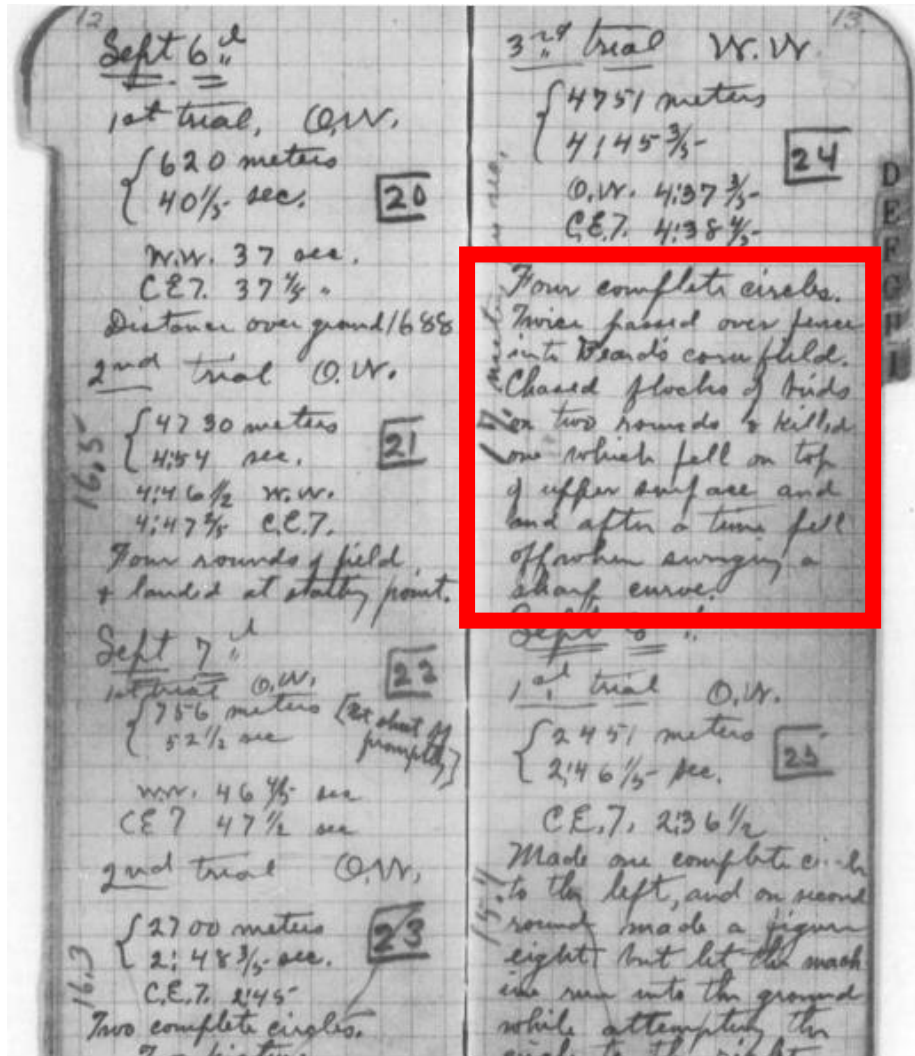 12
Sept 6"d
1st trial, O.W.
620 meters
40 1/5 sec.
20
W.W. 37 sec.
C.E.T. 37 4/5 "
Distance over ground 1688
2nd trial O.W.
16.5
4730 meters
4:54 sec.
21
4:46 1/2 W.W.
4:47 2/5 C.E.T.
Four rounds of field
& landed at starting point.
Sept 7"d
1st trial O.W.
22
756 meters [Not shut off
52 1/2 sec promptly]
W.W. 46 4/5 sec
C.E.T 47 1/2 sec
2nd trial O.W.
2700 meters
2:48 3/5 sec.
23
16.3
C.E.T. 2:45
Two complete circles.
13
3rd trial W.W.
4751 meters
4:45 3/5
24
O.W. 4:37 3/5
C.E.T. 4:38 4/5
Four complete circles.
Twice passed over fence
into Beard's cornfield.
Chased flocks of birds
on two rounds & killed
one which fell on top
of upper surface and
and after a time fell
off when swinging a
sharp curve.
Sept 8"
1st trial O.W.
2451 meters
2:46 1/5 sec.
25
C.E.T. 2:36 1/2
Made one complete circle
to the left, and on second
round made a figure
eight but let the mach
ine run into the ground
while attempting the
circle to the right
D
E
F
G
H
I